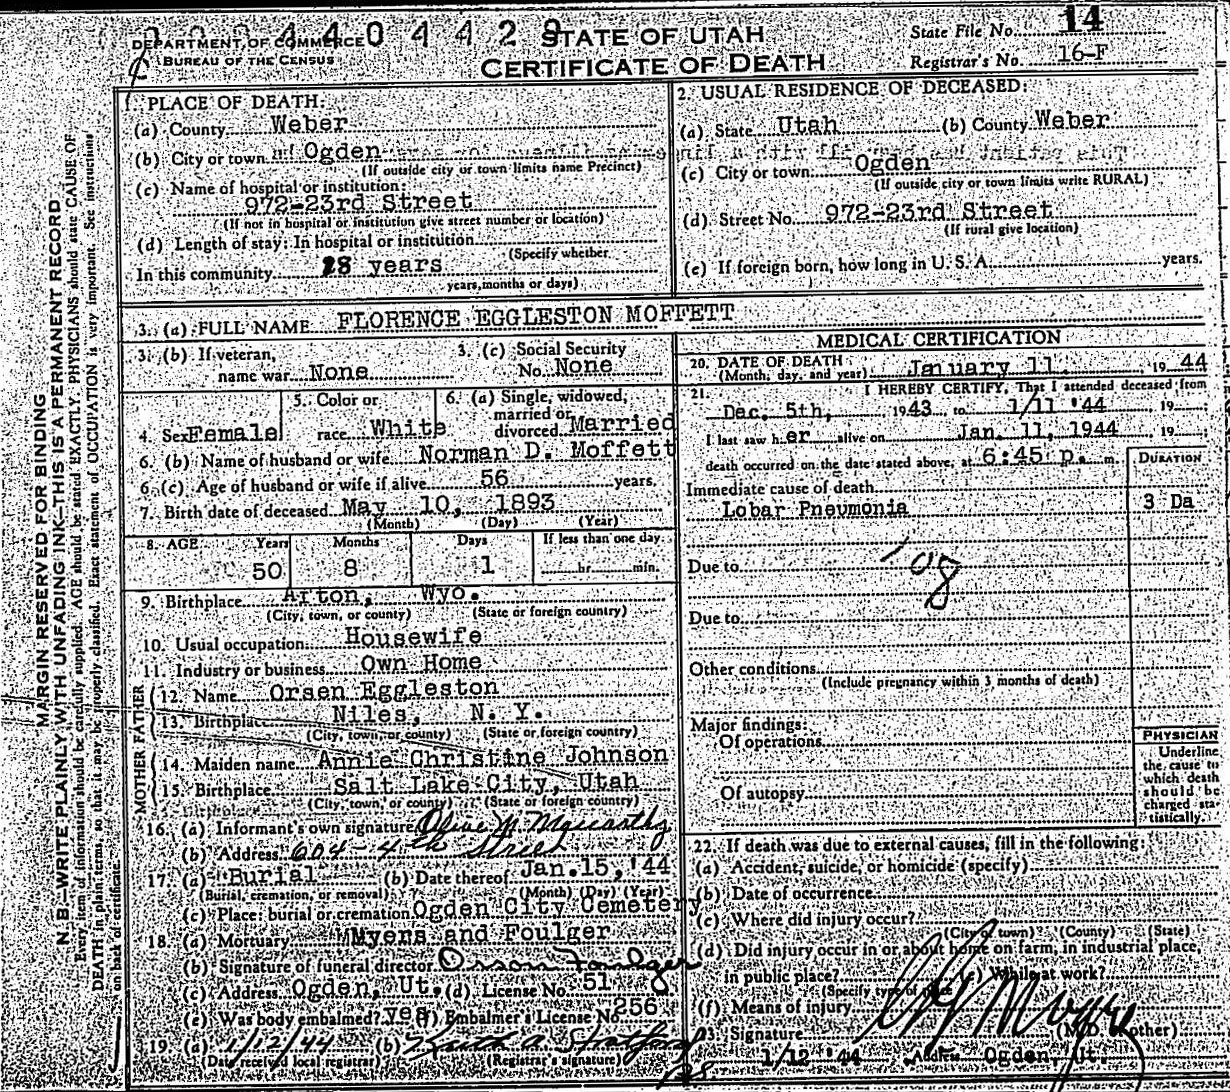 4 0 4 4 2 9
DEPARTMENT OF COMMERCE
BUREAU OF THE CENSUS
STATE OF UTAH
CERTIFICATE OF DEATH
State File No. 14
Registrar's No. 16-F
MARGIN RESERVED FOR BINDING
N B—WRITE PLAINLY WITH UNFADING INK—THIS IS A PERMANENT RECORD
Every item of information should be carefully supplied. AGE should be stated EXACTLY. PHYSICIANS should state CAUSE OF
DEATH in plain terms, so that it may be properly classified. Exact statement of OCCUPATION is very important. See instructions
on back of certificate.
1. PLACE OF DEATH.
(a) County Weber
(b) City or town Ogden
(If outside city or town limits name Precinct)
(c) Name of hospital or institution:
972-23rd Street
(If not in hospital or institution give street number or location)
(d) Length of stay: In hospital or institution
(Specify whether
In this community 28 years
years, months or days)
2. USUAL RESIDENCE OF DECEASED:
(a) State Utah (b) County Weber
(c) City or town Ogden
(If outside city or town limits write RURAL)
(d) Street No. 972-23rd Street
(If rural give location)
(e) If foreign born, how long in U. S. A. years.
3. (a) FULL NAME FLORENCE EGGLESTON MOFFETT
3. (b) If veteran, name war None
3. (c) Social Security No. None
4. Sex Female
5. Color or race White
6. (a) Single, widowed, married or divorced Married
6. (b) Name of husband or wife Norman D. Moffett
6. (c) Age of husband or wife if alive 56 years.
7. Birth date of deceased May 10, 1893
(Month) (Day) (Year)
8. AGE Years Months Days If less than one day
50 8 1 hr. min.
9. Birthplace Afton, Wyo.
(City, town, or county) (State or foreign country)
10. Usual occupation Housewife
11. Industry or business Own Home
FATHER
12. Name Orsen Eggleston
13. Birthplace Niles, N. Y.
(City, town, or county) (State or foreign country)
MOTHER
14. Maiden name Annie Christine Johnson
15. Birthplace Salt Lake City, Utah
(City, town, or county) (State or foreign country)
16. (a) Informant's own signature Olive M
(b) Address 604 - 4th Street
17. (a) Burial (b) Date thereof Jan.15,'44
(Burial, cremation, or removal) (Month) (Day) (Year)
(c) Place: burial or cremation Ogden City Cemetery
18. (a) Mortuary Myers and Foulger
(b) Signature of funeral director Orson Foulger
(c) Address Ogden, Ut. (d) License No. 51
(e) Was body embalmed? yes (f) Embalmer's License No 256
19. (a) 1/12/44 (b)
(Date received local registrar) (Registrar's signature)
MEDICAL CERTIFICATION
20. DATE OF DEATH
(Month, day, and year) January 11, 19 44
21. I HEREBY CERTIFY, That I attended deceased from
Dec. 5th, 1943 to 1/11 '44 19
I last saw h er alive on Jan. 11, 1944 19
death occurred on the date stated above, at 6:45 p. m.
DURATION
Immediate cause of death
Lobar Pneumonia 3 Da
Due to 108
Due to
Other conditions
(Include pregnancy within 3 months of death)
Major findings:
Of operations
Of autopsy
PHYSICIAN
Underline
the cause to
which death
should be
charged sta-
tistically.
22. If death was due to external causes, fill in the following:
(a) Accident, suicide, or homicide (specify)
(b) Date of occurrence
(c) Where did injury occur?
(City or town) (County) (State)
(d) Did injury occur in or about home on farm, in industrial place,
in public place? (e) While at work?
(Specify type of place
(f) Means of injury
23. Signature (M.D. or other)
1/12 '44 Address Ogden, Ut.